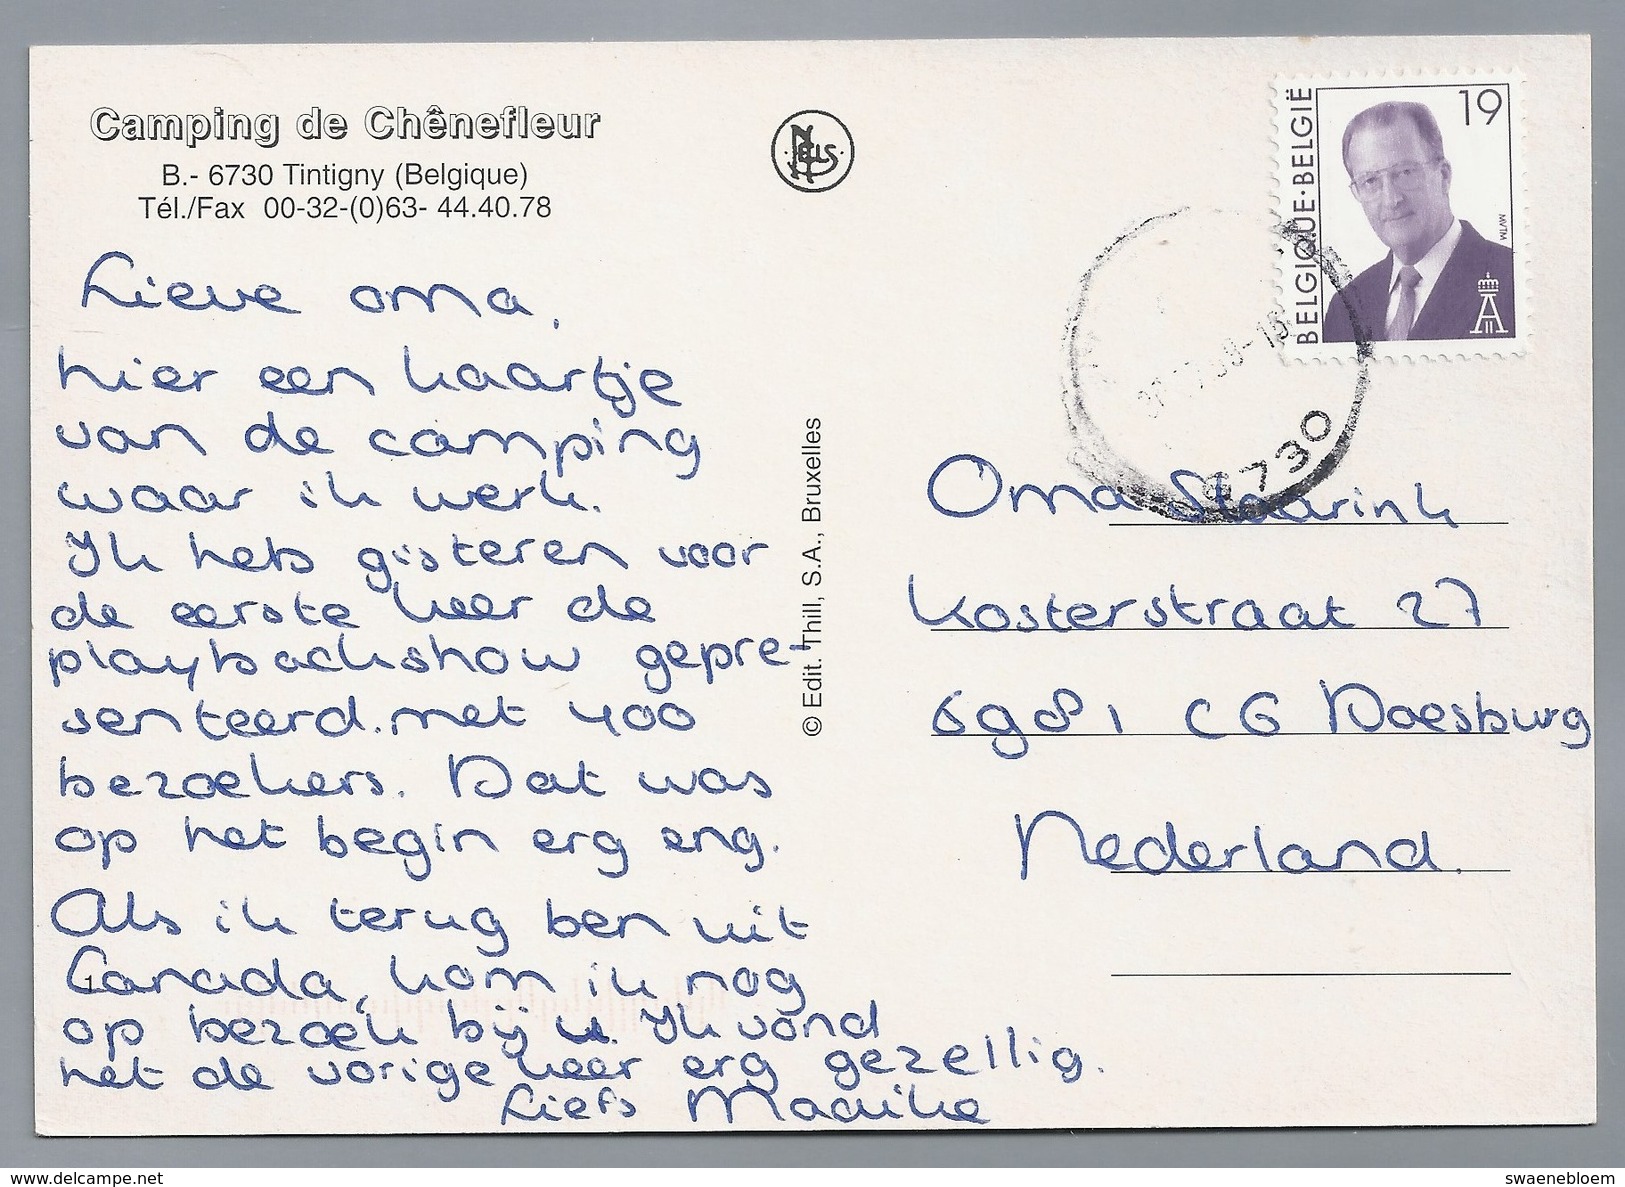 Camping de Chênefleur
B.- 6730 Tintigny (Belgique)
Tél./Fax 00-32-(0)63- 44.40.78
Lieve oma,
hier een kaartje
van de camping
waar ik werk.
Ik heb gisteren voor
de eerste keer de
playbackshow gepre-
senteerd. met 400
bezoekers. Dat was
op het begin erg eng.
Als ik terug ben uit
Canada, kom ik nog
op bezoek bij u. Ik vond
het de vorige keer erg gezellig.
Liefs Maaike
1
© Edit. Thill, S.A., Bruxelles
Nels
BELGIQUE·BELGIË
19
MVTM
6730
Oma Staarink
Kosterstraat 27
6981 CG Doesburg
Nederland.
www.delcampe.net
swaenebloem